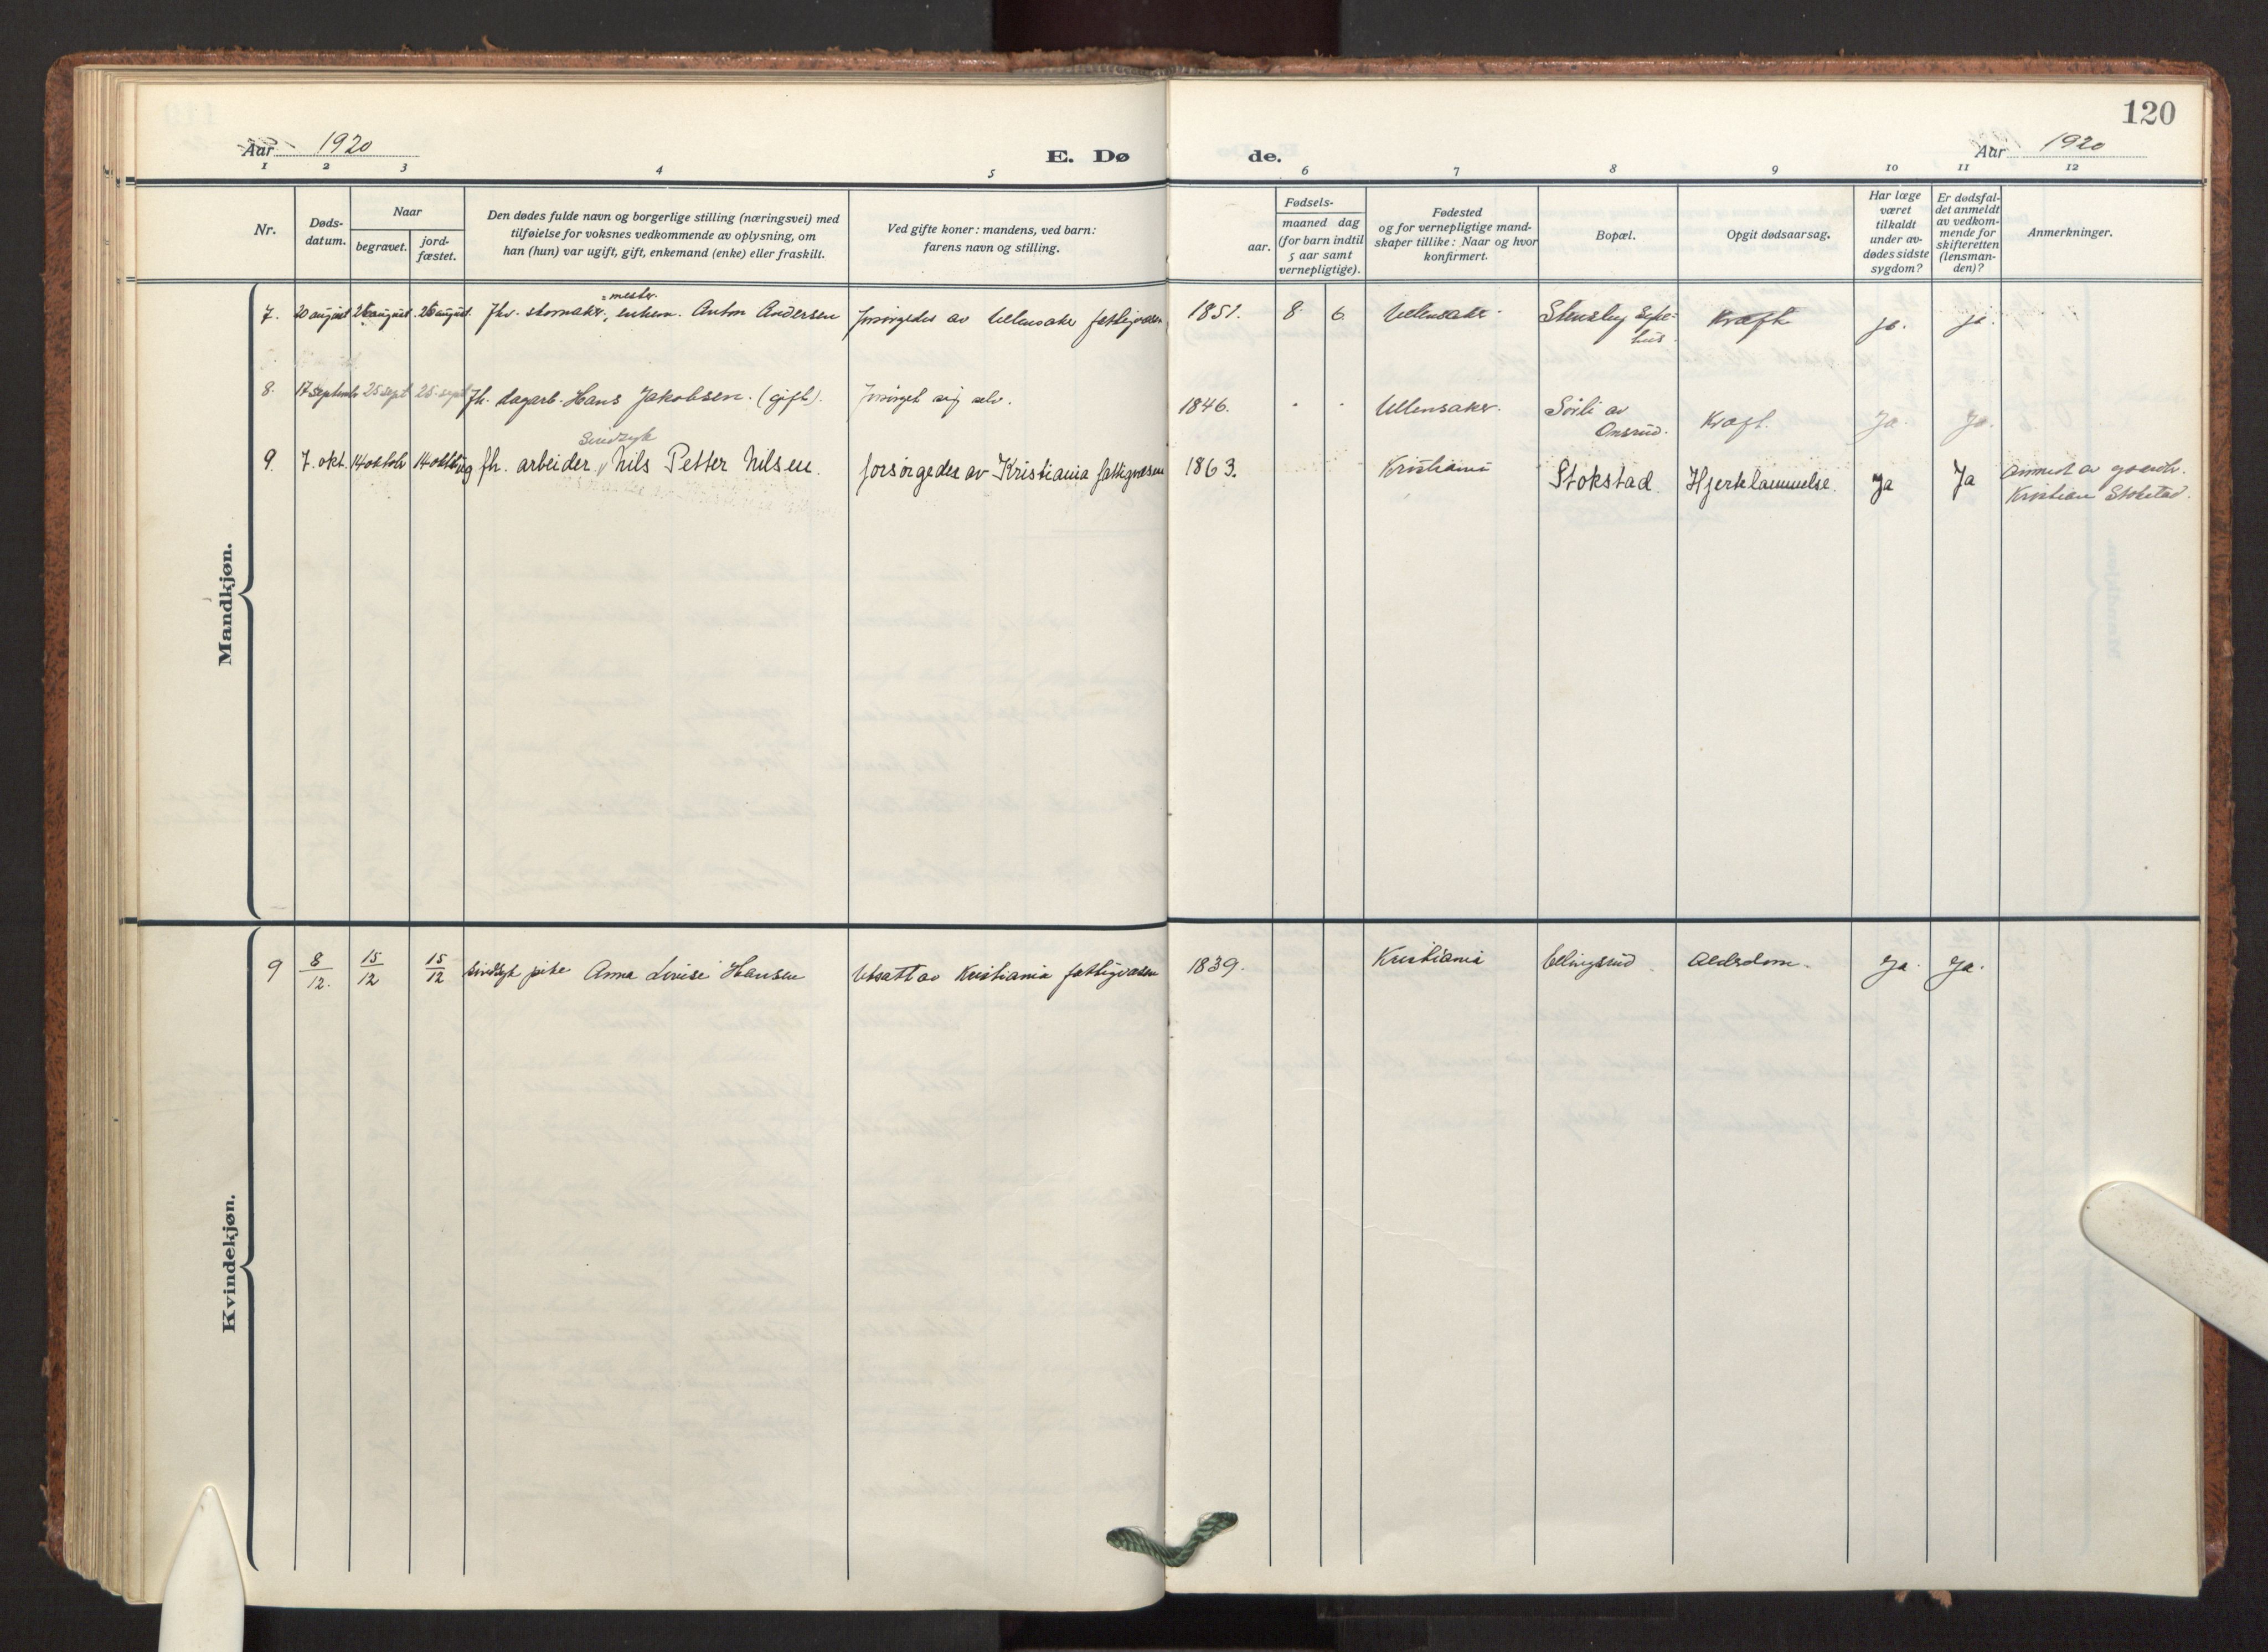 120
Aar 1920
E. Dø de.
Aar 1920
1 2 3 4 5 6 7 8 9 10 11 12
Nr.
Døds-
datum.
Naar
begravet.
jord-
fæstet.
Den dødes fulde navn og borgerlige stilling (næringsvei) med
tilføielse for voksnes vedkommende av oplysning, om
han (hun) var ugift, gift, enkemand (enke) eller fraskilt.
Ved gifte koner: mandens, ved barn:
farens navn og stilling.
Fødsels-
aar.
maaned dag
(for barn indtil
5 aar samt
vernepligtige).
Fødested
og for vernepligtige mand-
skaper tillike: Naar og hvor
konfirmert.
Bopæl.
Opgit dødsaarsag.
Har læge
været
tilkaldt
under av-
dødes sidste
sygdom?
Er dødsfal-
det anmeldt
av vedkom-
mende for
skifteretten
(lensman-
den)?
Anmerkninger.
Mandkjøn.
mester.
7. 20 august august. august. skomaker, enkem. Anton Andersen forsørgedes av Ullensaker fattigvæsen 1851. 8. 6 Ullensaker. Stensby Syke-
hus. Kræft ja. ja.
8. 17 septemb 25 sept 25. sept fh. dagarb. Hans Jakobsen. (gift). forsørget sig selv. 1846. Ullensaker. Sørli av
Onsrud. Kræft. Ja. Ja.
Sindssyk
9. 7. okt. 14 oktob 14 oktob ug fh. arbeider Nils Petter Nilsen. forsørgedes av Kristiania fattigvæsen 1863. Kristiania Stokstad. Hjertelammelse. Ja Ja Anmeldt av gaardbr.
Kristian Stokstad.
Kvindekjøn.
9 8/12. 15/12 15/12 sindssyk pike Anna Lovise Hansen Utsatt av Kristiania fattigvæsen 1839. Kristiania Ellingsrud. Alderdom. Ja. Ja.